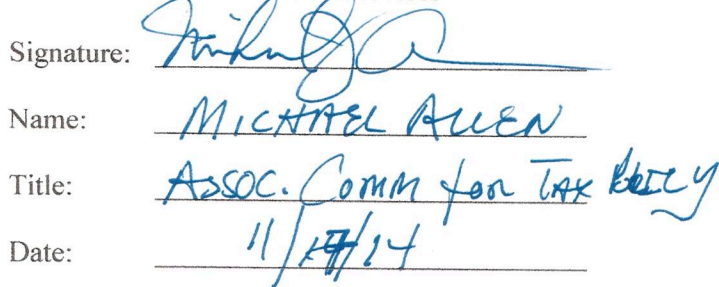 Signature:
Name: MICHAEL ALLEN
Title: ASSOC. COMM for TAX POLICY
Date: 11/17/14